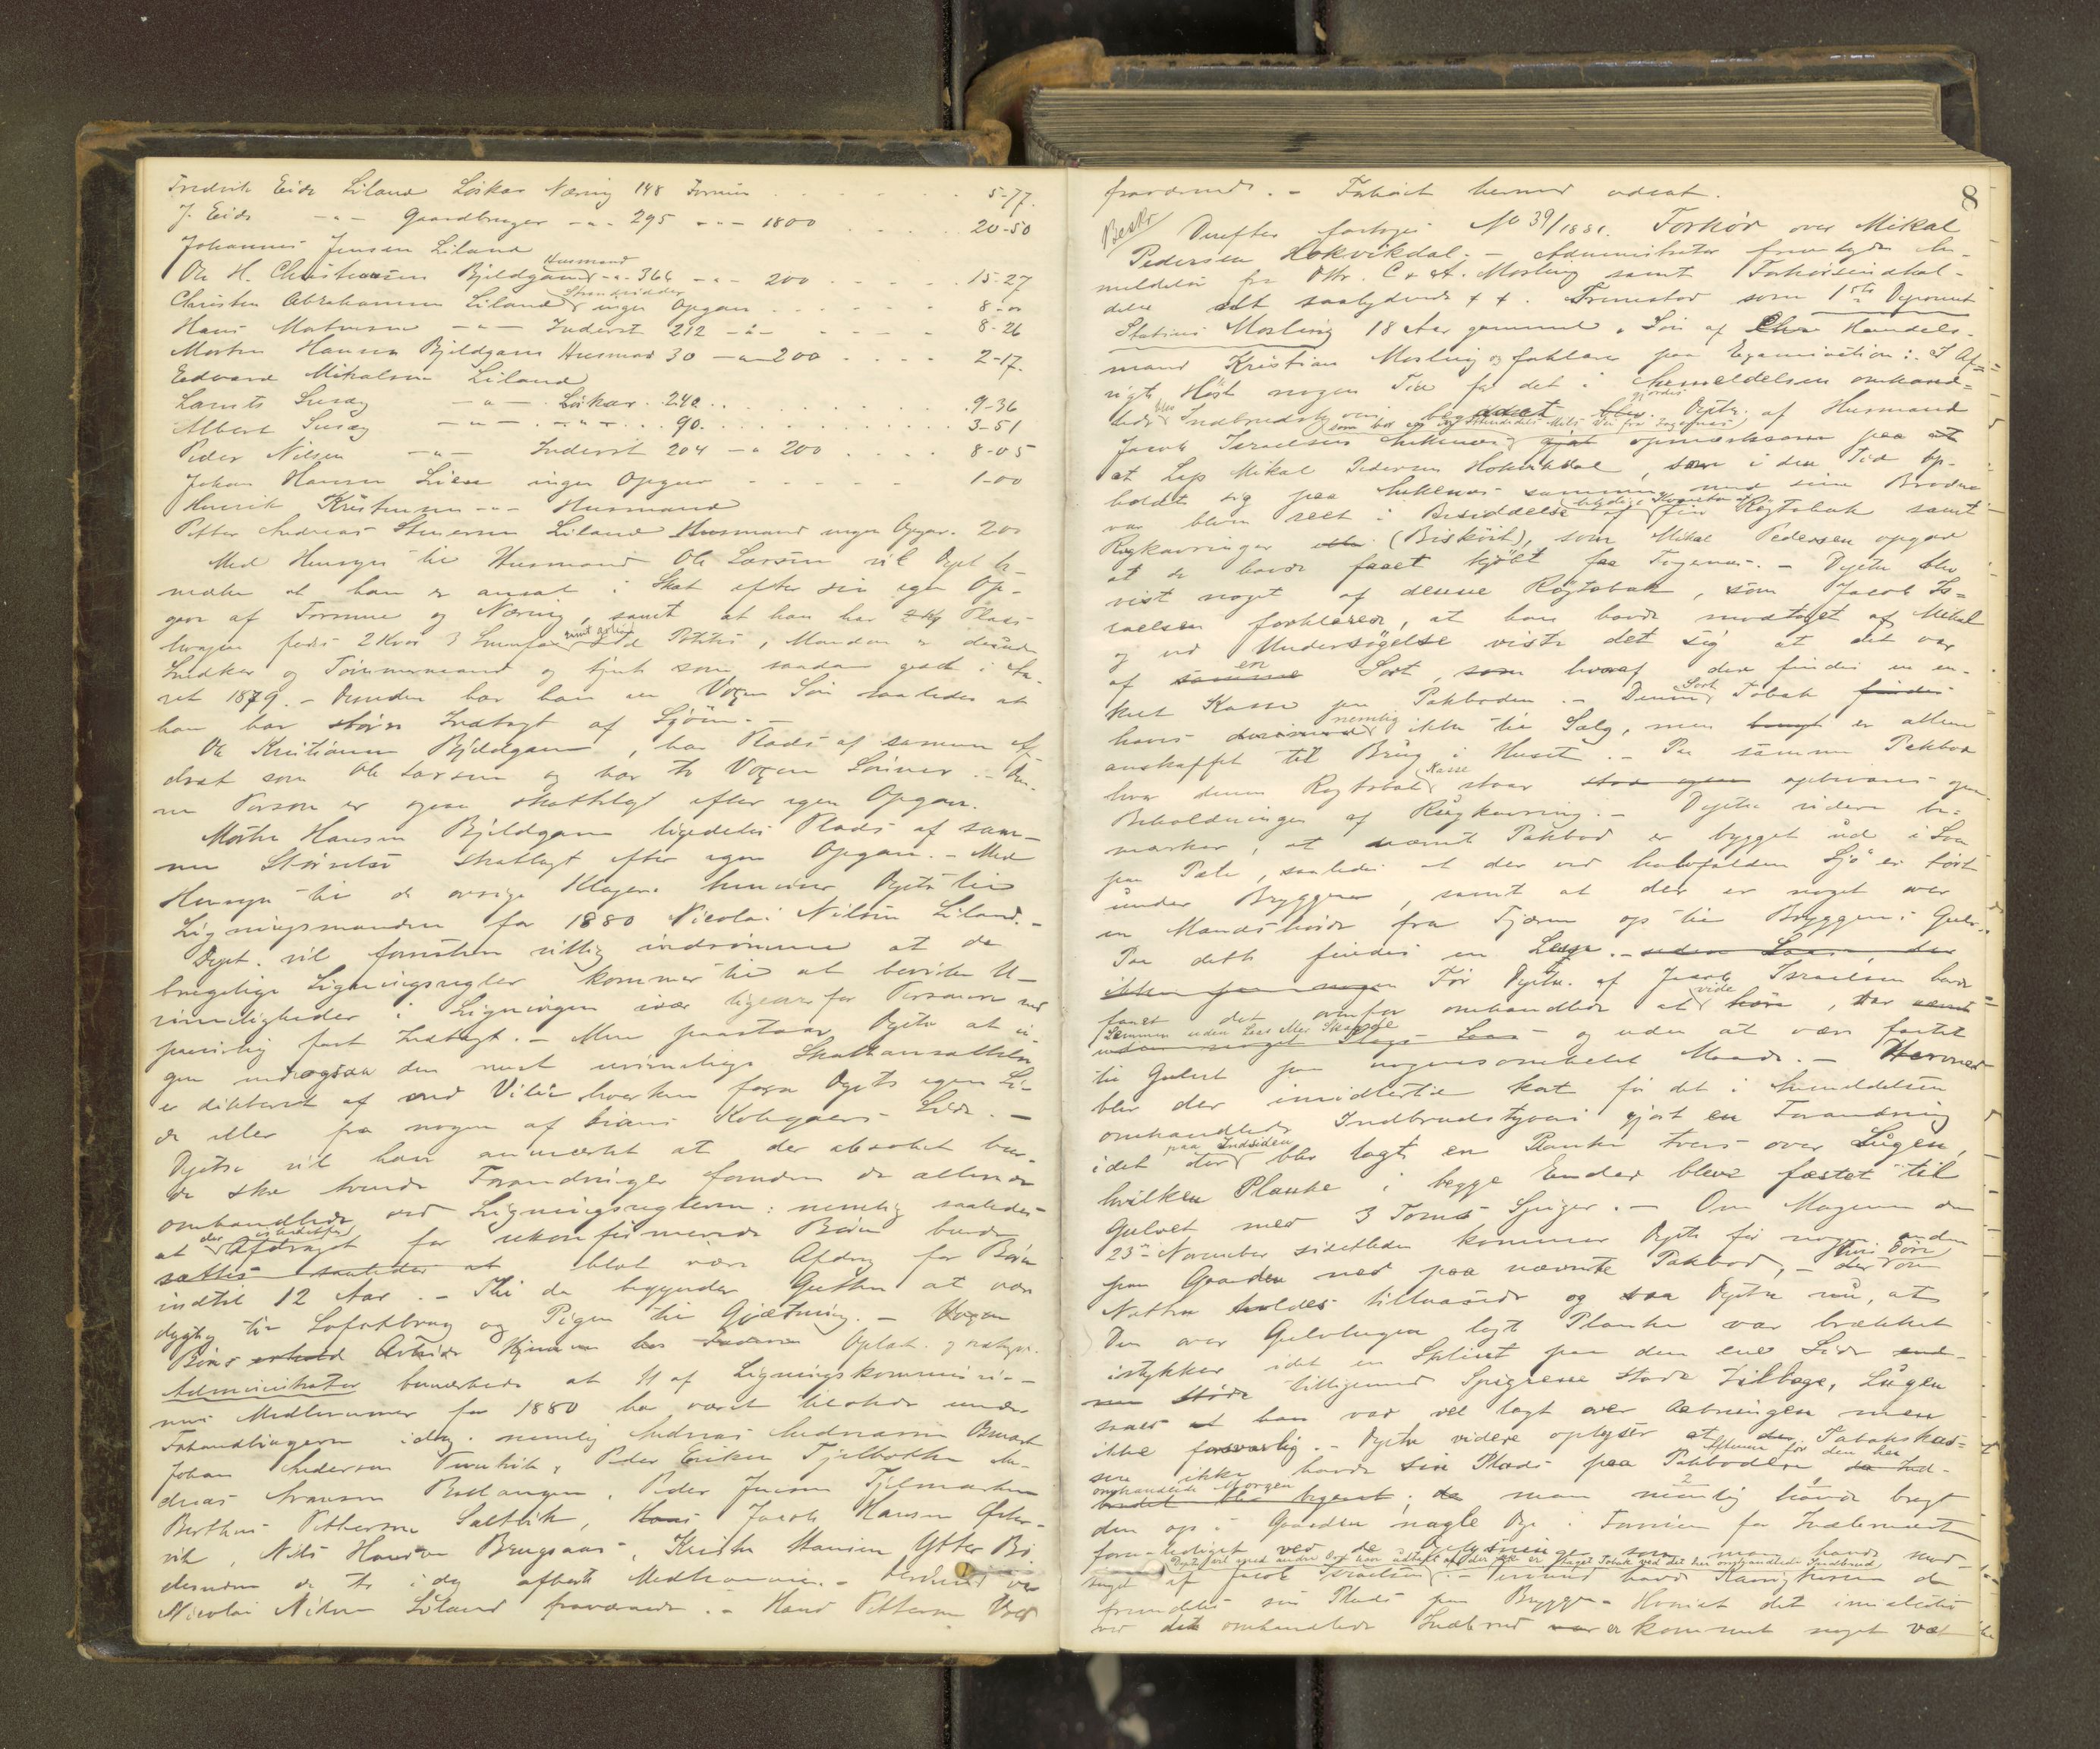 Fredrik Eide Liland Løskar Næring 148 Formue 5-77.
J. Eide -"- Gaardbruger -"- 295 -"- 1800 20-50
Johannes Jensen Liland
Ole H. Christiansen Bjeldgam Husmand -"- 366 -"- 200 15-27
Christen Abrahamsen Liland Strandsidder ingen Opgave 8-00
Hans Martinsen -"- Inderst 212 -"- 8-26
Morten Hansen Bjeldgam Husmand 30 -"- 200 2-17.
Edvard Mikalsen Liland
Lauits -"- Løskar 240 9-36
Albert -"- -"- 90. 3-51
Peder Nilsen -"- Inderst 204 -"- 200 8-05
Johan Hansen ingen Opgave 1-00
Henrik Kristensen -"- Husmand
Petter Andreas Liland Husmand ingen Opgav. 200
Med Hensyn til Husmand Ole Larsen vil Dept be-
mærke at han er ansat i Skat efter sin egen Op-
gave af Formue og Næring, samt at han har Plads
hvorpaa fødes 2 Kvæ 3 samt avlin Potetes, Manden er desuden
Snedker og Tømmermand og tjente som saadan godt i Aa-
ret 1879. - Desuden har han en Voxen Søn saaledes at
han har større Indtægt af Sjøen. -
Ole Kristiansen Bjeldgam, har Plads af samme
som Ole Larsen og har to Voxne Sønner. - Den-
ne Person er ogsaa skattelagt efter egen Opgave.
Morten Hansen Bjeldgam ligedeles Plads af sam-
me Størrelse skatlagt efter egen Opgave. - Med
Hensyn til de øvrige Klagere henviser Depte til
Ligningsmanden for 1880 Nicolai Nilsen Liland. -
Dept. vil forresten villig indrømme at de
brugelige Ligningsregler kommer til at bevirke U-
rimeligheder i Ligningen især ligeoverfor Personer med
fast Indtægt. - Men paastaar Depte at in-
gen endogsaa den mest urimelige Skatteansættelse
er dikteret af ond Vilie hverken fra Depts egen Si-
de eller fra nogen af hans Kollegaers Side. -
Depte vil have anmærket at der absolut bur-
de ske Forandringer foruden de allerede
omhandlede ved Ligningsreglerne: nemlig saaledes
at der Afdraget for ukonfirmerede Børn burde
sættes saaledes at blot være Afdrag for Børn
indtil 12 Aar. - Thi da begynder Gutten at være
dygtig til Lofotbrug og Pigen til Gjætning. - Voxne
Børns Arbeide Hjemme Oplæst. og vedtaget.
Administrator bemærkede at 11 af Ligningskommissio-
nens Medlemmer for 1880 har været tilstede under
Forhandlingerne idag. nemlig Andreas Andreassen
Johan Andersen, Peder Eriksen Fjelbotten An-
dreas Aronsen, Peder Jensen Fjelmarken
Berthus Pettersen Saltvik, Hans Jacob Hansen Øster-
vik, Nils Hansen Brugsaas, Kristen Hansen Ytter
desuden de to idag afhørte Medlemmer. -
Nicolai Nilsen Liland fraværende. - Hans Pettersen
8
fraværende. - Forhøret hermed udsat.
Beskr
Derefter foretoges No 39/1881. Forhør over Mikal
Pedersen Hokvikdal. - Administrator fremlagde An-
meldelse fra Dhr. C & A. Mosling samt Forhørsindkal-
delse alt saalydende ++. Fremstod som 1ste Deponent
Statius Mosling 18 Aar gammel, Søn af Handels-
mand Kristian Mosling og forklarer paa Examination: I Af-
vigte Høst nogen Tid før det i Anmeldelsen omhand-
lede Indbrudstyveri begaaet blev gjordes Dpten. af Husmand
Jacob Israelsen Ankenes gjort opmærksom paa at
at Lap Mikal Pedersen Hokvikdal, som i den Tid op-
holdt sig paa Ankenes sammen med sine Brødre
var bleven seet i Besiddelse af betydelige Kvanta af fiin Røgtobak samt
Rugkavringer (Biskøit), som Mikal Pedersen opgav
at de havde faaet kjøbt fra Fagernes. - Depten blev
vist noget af denne Røgtobak, som Jacob Is-
raelsen forklarer, at han havde modtaget af Mikal
og ved Undersøgelse viste det sig at det var
af samme en Sort, som hvoraf der findes en en-
kelt Kasse paa Pakboden. - Denne Sort Tobak findes
haves nemlig ikke til Salg, men er alene
anskaffet til Brug i Huset. - Paa samme Pakbod
hvor denne Røgtobak Kasse staar opbevares ogsaa
Beholdningen af Rugkavring. - Depten videre be-
mærker, at nævnte Pakbod er bygget ud i Søen
paa Pæle, saaledes at der ved halvfalden Sjø er tørt
under Bryggen, samt at der er noget over
en Mandshøide fra Fjæren op til Bryggens Gulv.
Paa dette findes en Lem. - uden Laas, der
ikke paa nogen Før Depten. af Jacob Israelsen havde
faaet det ovenfor omhandlede at vide høre, var nævnte
Lemmen uden Laas eller Skaade og uden at være fæstet
uden noget Slags Laas
til Gulvet paa nogensomhelst Maade. - Hermed
blev der imidlertid kort før det i Anmeldelsen
omhandlede Indbrudstyveri gjort en Forandring
idet der paa Indsiden blev lagt en Planke tvers over Lugen,
hvilken Planke i begge Ender blev fæstet til
Gulvet med 3 Toms Spiger. - Om Morgenen den
23de November sidstleden kommer Depte før nogen anden
paa Gaarden ned paa nævnte Pakbod, - der om
Natten holdes tillaaset og saa Depten nu, at
Den over Gulvlugen lagte Planke var brækket
istykker idet en Splint paa den ene Side
tilligemed Spigrene stode tilbage, Lugen
saaes at han var vel lagt over Aabningen men
ikke forsvarlig. - Depten videre oplyser at den Tobakskas-
sen ikke havde sin Plads paa Pakboden Aftenen før den her
omhandlede Morgen
; da man nemlig havde bragt
den op i Gaarden nogle Dge i Forveien for Indbruddet
foranlediget ved de Oplysninger som man havde mod-
taget af Jacob Israelsen. - Derimod havde Kavringkassen da
fremdeles sin Plads paa Bryggen. Hvorvidt det imidlertid
ved det omhandlede Indbrud er kommet noget væk